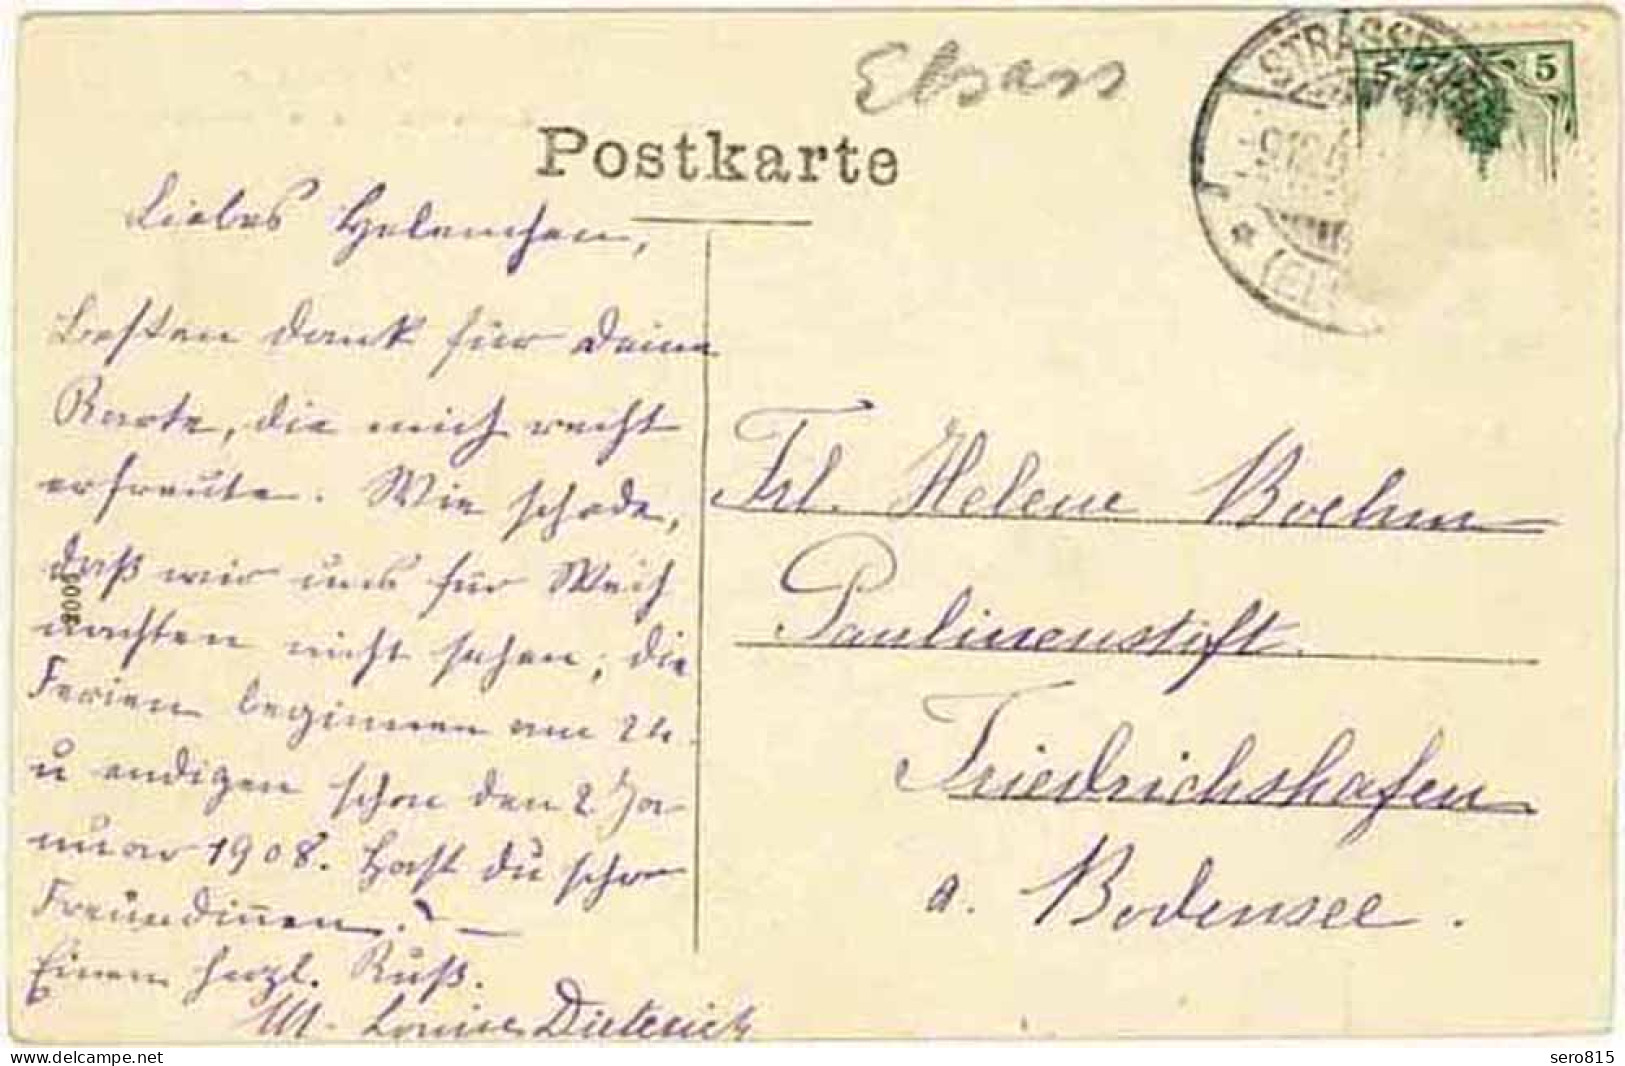 Elsass
Postkarte
STRASSB
5 5
* (ELS
Liebes Helenchen,
Besten Dank für Deine
Karte, die mich recht
erfreute. Wie schade,
daß wir uns für Weih
nachten nicht sehen, die
Ferien beginnen am 24.
u endigen schon den 2 Ja-
nuar 1908. Hast du schon
Freundinnen. ?—
Einen herzl. Kuß.
M. Louise Dieterich
Frl. Helene Boehm
Paulinenstift.
Friedrichshafen
a. Bodensee.
sero815